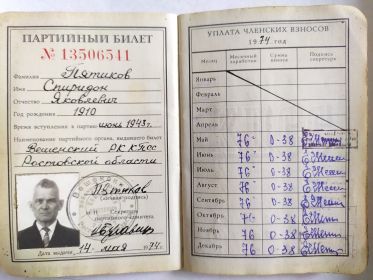 ПАРТИЙНЫЙ БИЛЕТ
№ 13506541
Фамилия Пятиков
Имя Спиридон
Отчество Яковлевич
Год рождения 1910
Время вступления в партию июнь 1943 г.
Наименование партийного органа, выдавшего билет
Вешенский РК КПСС
Ростовской области
Пятиков
(личная подпись)
М. П. Секретарь
партийного комитета
Дата выдачи 14 мая 1974 г.
УПЛАТА ЧЛЕНСКИХ ВЗНОСОВ
1974 год
Месяц Месячный заработок Сумма взноса Подпись секретаря
Январь
Февраль
Март
Апрель
Май 76 0-38
Июнь 76 0-38
Июль 76 0-38
Август 76 0-38
Сентябрь 76 0-38
Октябрь 76 0-38
Ноябрь 76 0-38
Декабрь 76 0-38